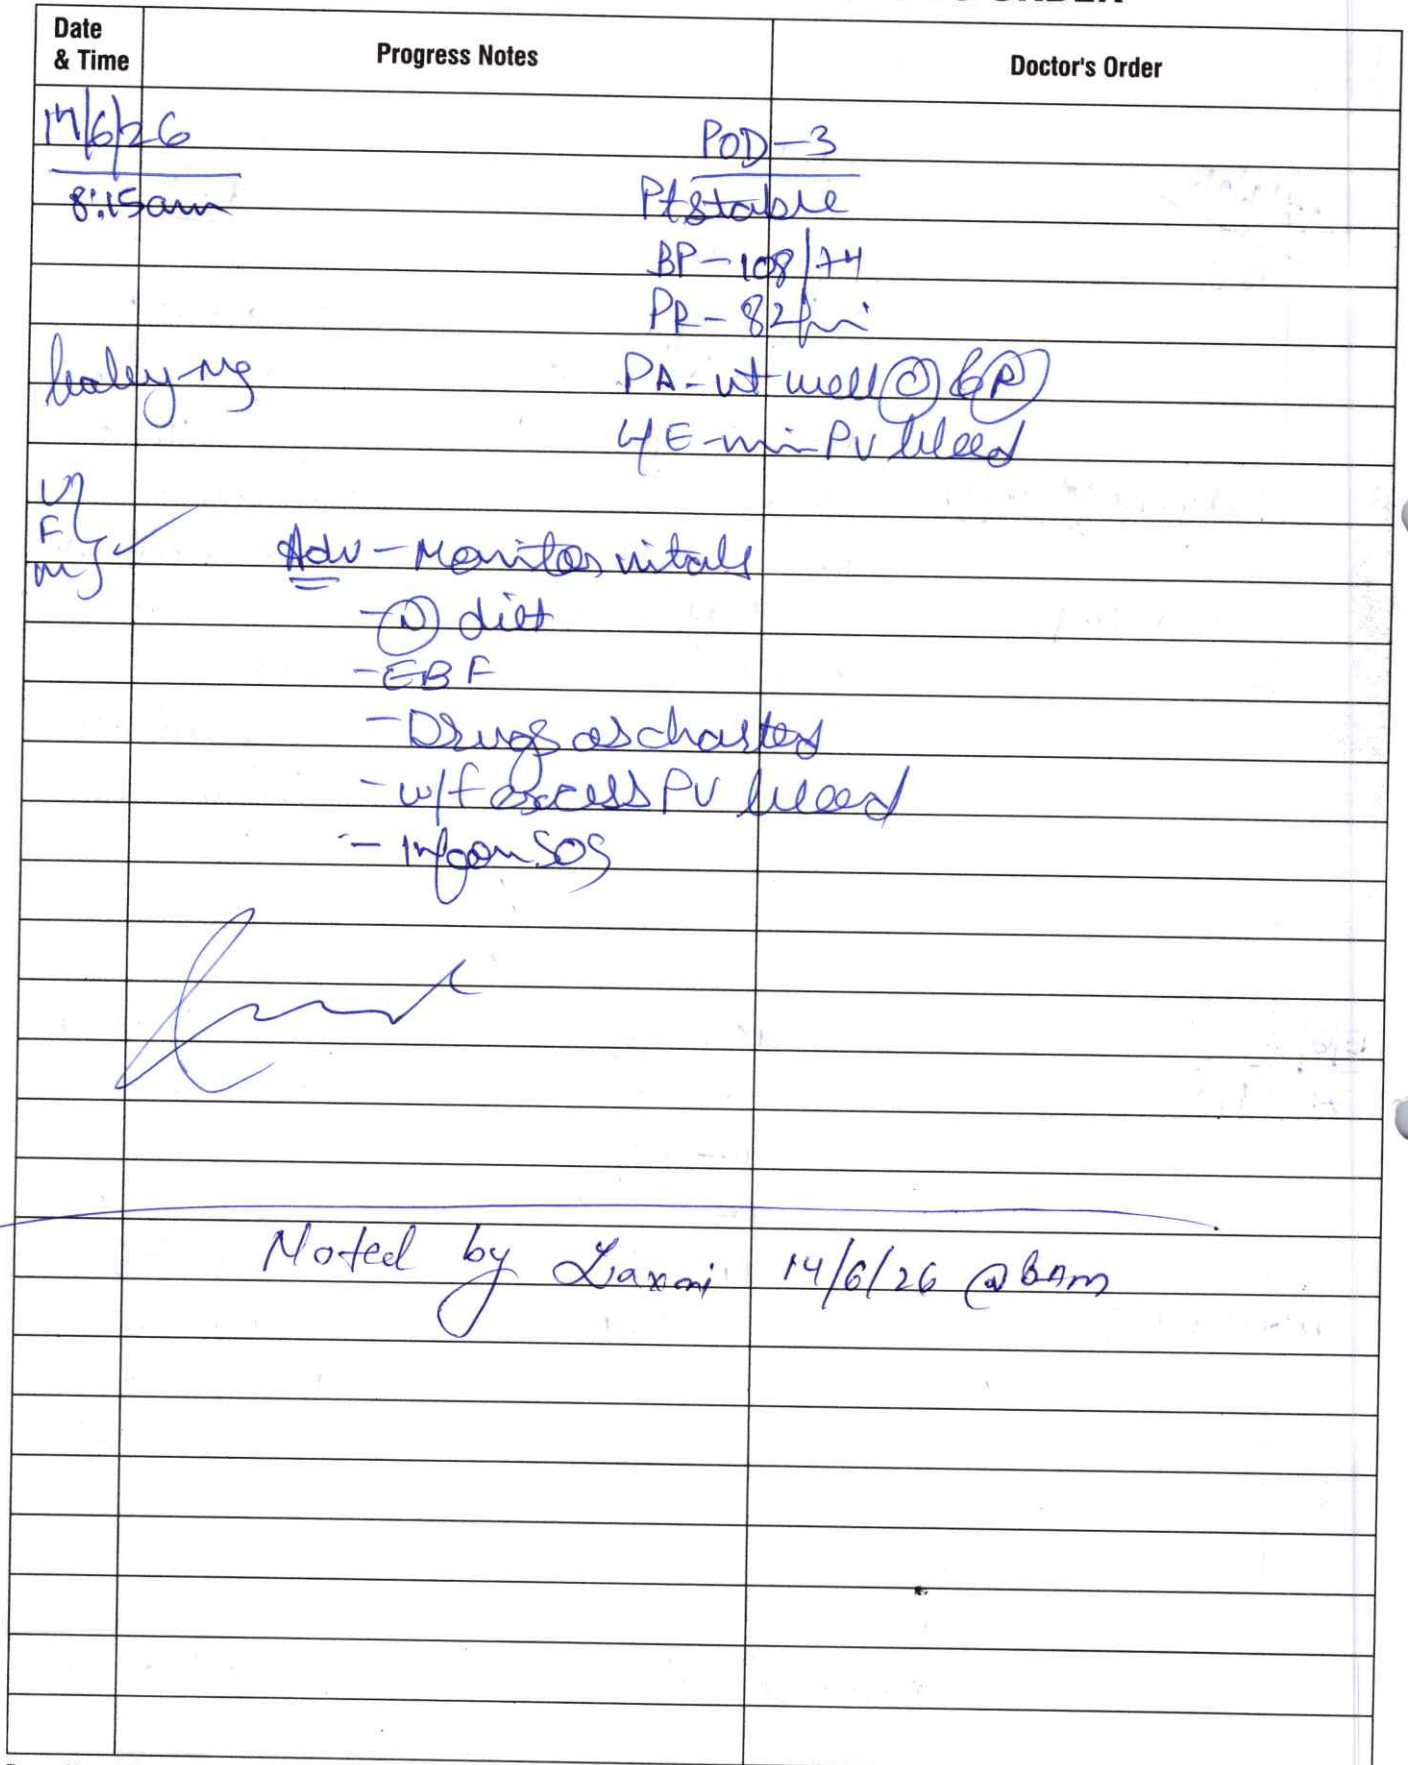 Date & Time
Progress Notes
Doctor's Order
14/6/26
POD-3
8:15am
Pt stable
BP-108/74
PR-82
baby-
PA-ut well
L/E-min PV bleed
U
F
M
Adv-Monitor vitals
-(N) diet
-EBF
-Drugs as charted
-w/f excess PV bleed
-Inform SOS
Noted by Laxmi 14/6/26 @ 8Am